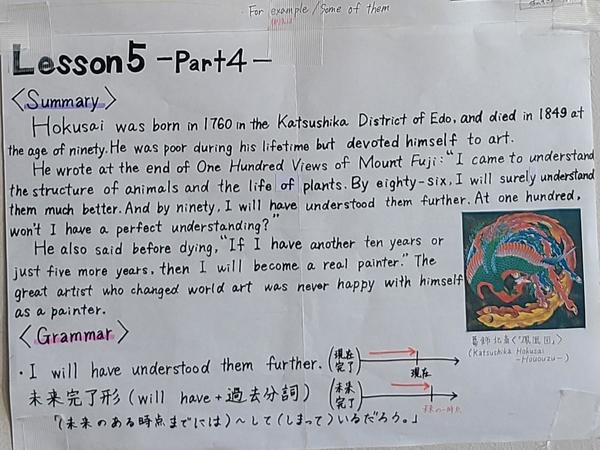 · For example / Some of them
Lesson5 -Part4-
〈Summary〉
Hokusai was born in 1760 in the Katsushika District of Edo, and died in 1849 at
the age of ninety. He was poor during his lifetime but devoted himself to art.
He wrote at the end of One Hundred Views of Mount Fuji: "I came to understand
the structure of animals and the life of plants. By eighty-six, I will surely understand
them much better. And by ninety, I will have understood them further. At one hundred,
won't I have a perfect understanding?"
He also said before dying, "If I have another ten years or
just five more years, then I will become a real painter." The
great artist who changed world art was never happy with himself
as a painter.
葛飾北斎〈「鳳凰図」〉
(Katsushika Hokusai
-Hououzu-)
〈Grammar〉
· I will have understood them further. (現在完了)
現在
未来完了形 (will have + 過去分詞) (未来完了)
未来の一時点
「(未来のある時点までには)〜して(しまって)いるだろう。」